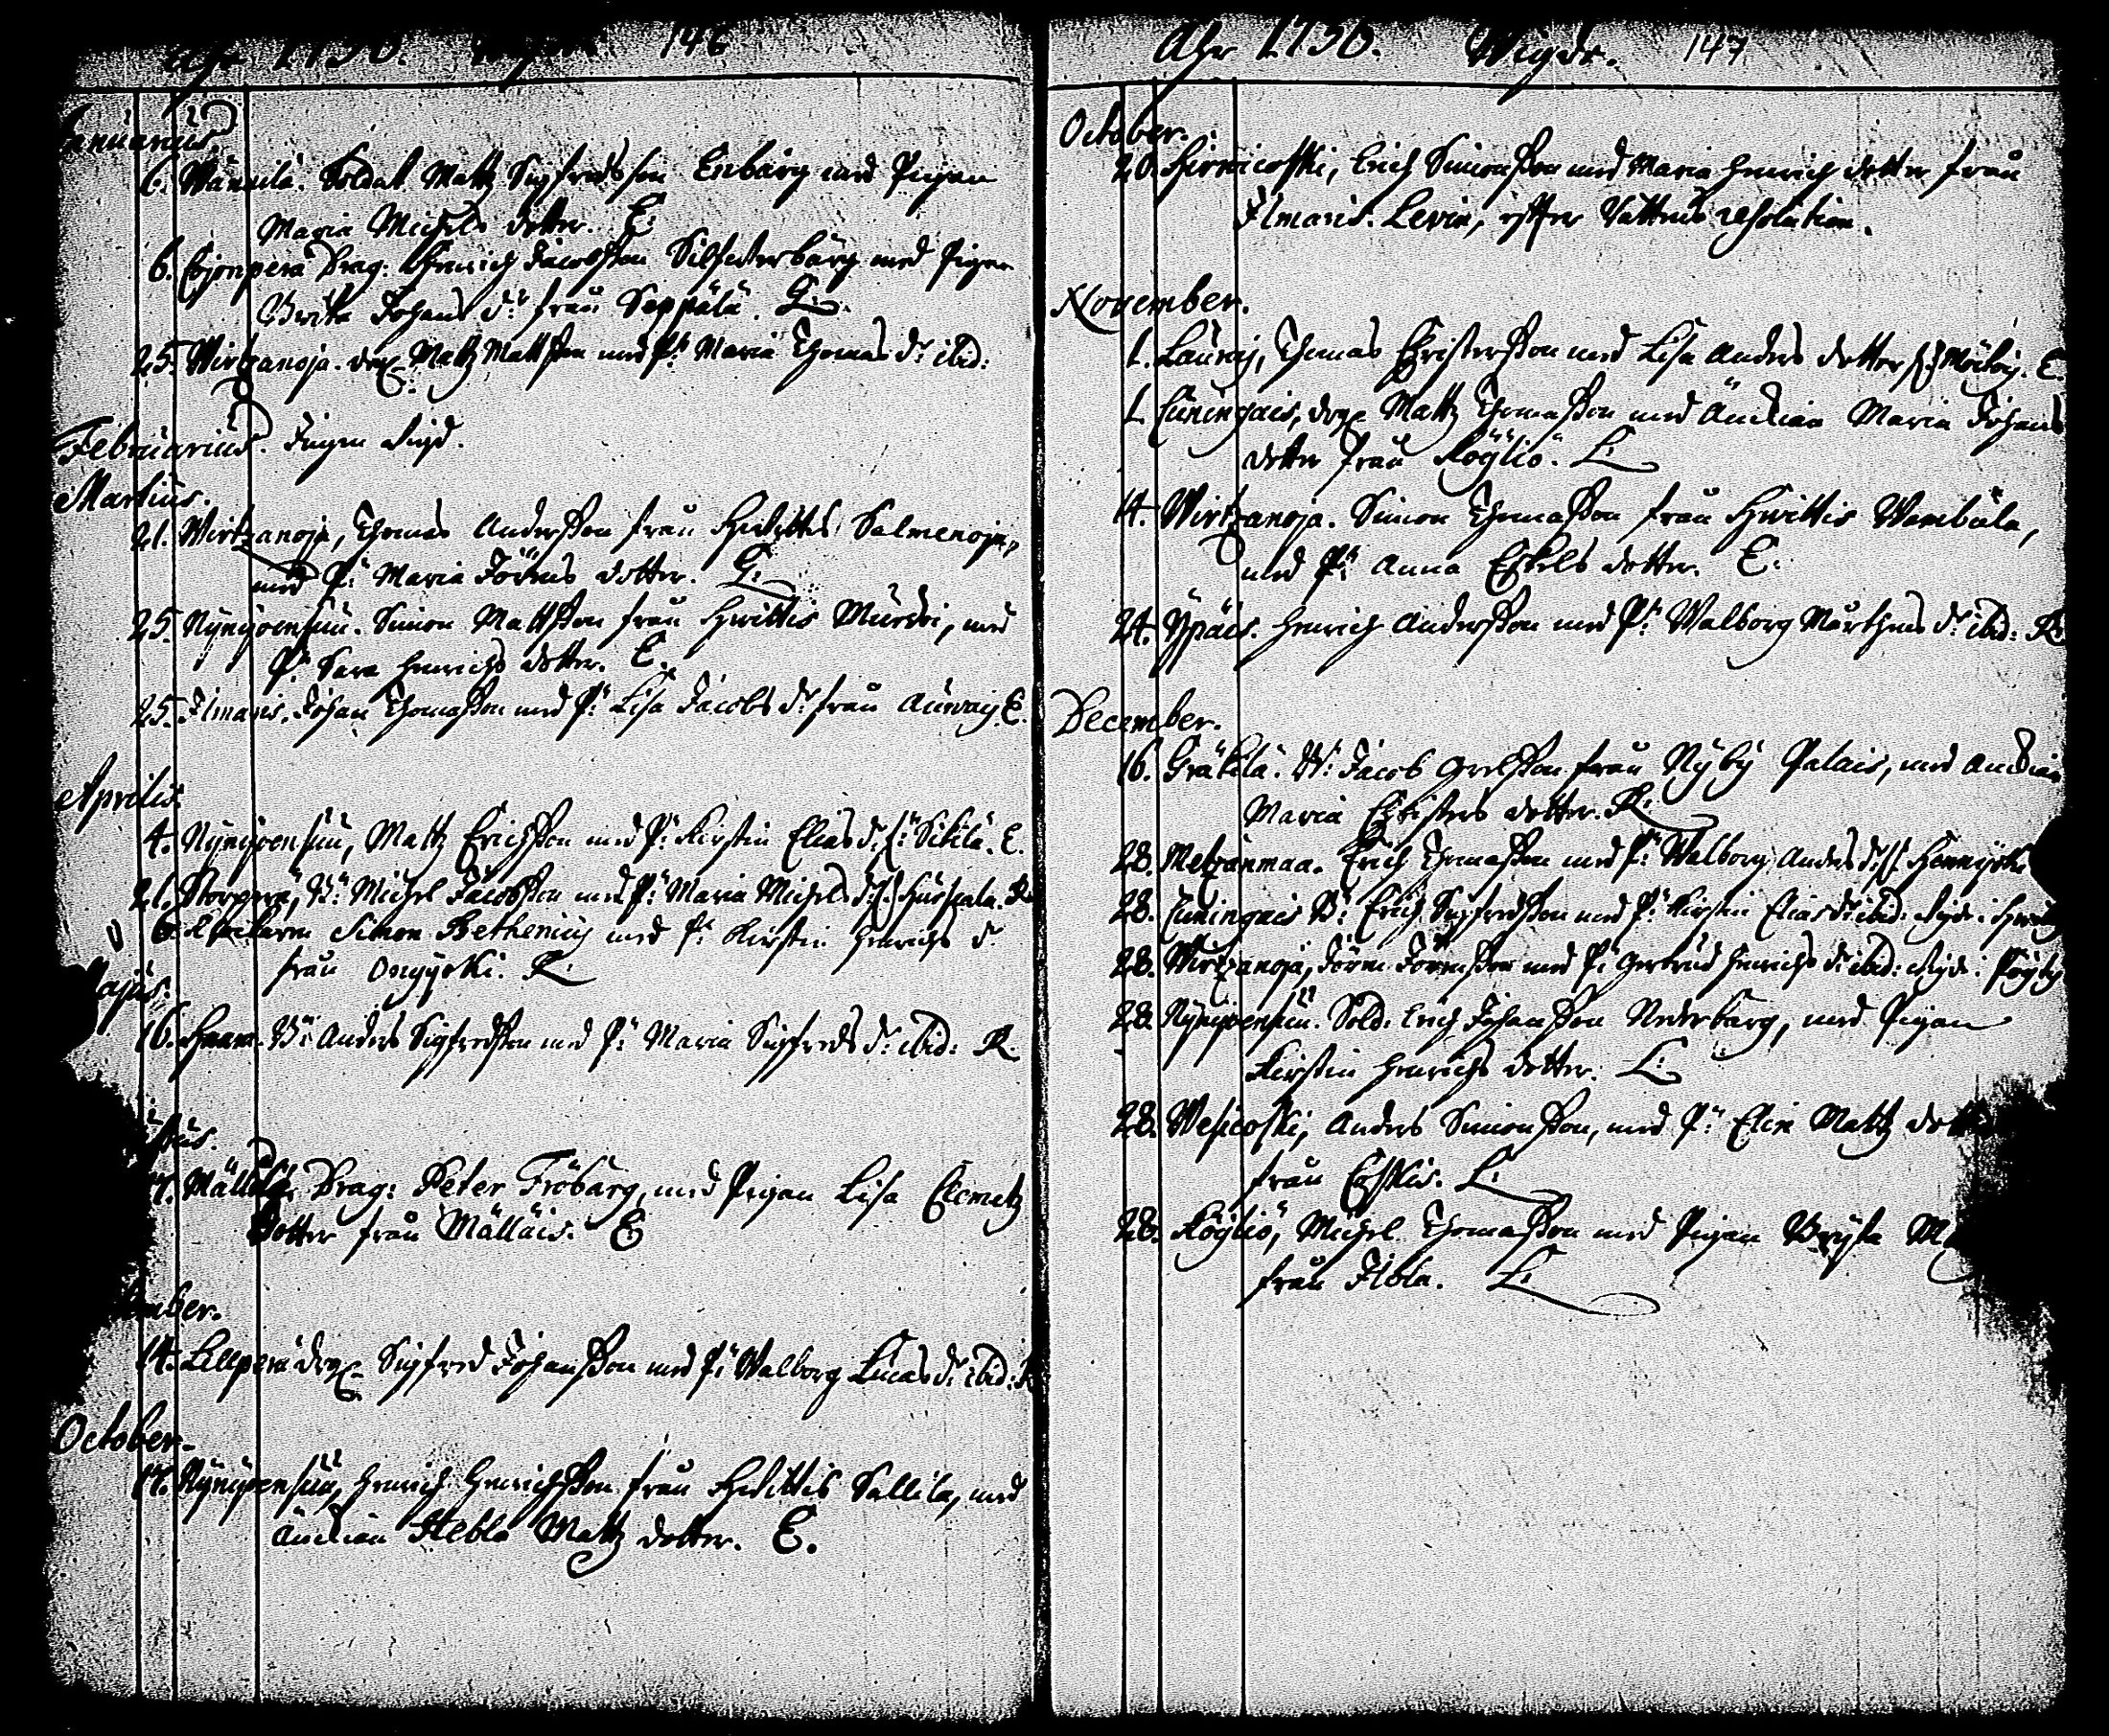 Åhr 1750. 146
Januarius.
6. Wännilä. Soldat Mattz Sigfredsson Enbärg med Pigan
Maria Michels dotter. E.
6. Cojonperä Drag: Henrich Jacobsson Silfwerbärg med Pigan
Brita Johans dr från Seppälä. L.
25. Wirtzanoja. drg Mattz Mattsson med P: Maria Thomas dr ibid:
E.
Februarius. Ingen wigd.
Martius.
21. Wirtzanoja, Thomas Andersson från Hwittis Salmenoja,
med P: Maria Jörens dotter. L.
25. Nyngoensuu. Simon Mattsson från Hwittis Murdoi, med
P: Sara Henrichs dotter. E.
25. Ilmaris. Johan Thomasson med P: Lisa Jacobs dr från Auwais. E.
Aprilis.
4. Nyngoensuu, Mattz Erichsson med P: Kirstin Elias d: f: Sikilä. E.
21. Storperä, B: Michel Jacobsson med P: Maria Michels d: f:
6. Simon Bethenius med P: Kirstin Henrichs d.
från K.
Majus.
16. B: Anders Sigfredsson med P: Maria Sigfreds d: ibid: K.
Drag: Peter Fröbärg, med Pigan Lisa Clemetz
dotter från Mälläis. E
ember.
14. Lillperä drg Sigfred Johansson med P: Walborg Lucas d: ibid: K
October.
17. Nyngoensuu, Henrich Henrichsson från Hwittis Sallila, med
Änckian Hebla Mattz dotter. E.
Åhr 1750. Wigde. 147
October.
20. Hirwicoski, Erich Simonsson med Maria Henrichs dotter från
Ilmaris. Levin, efter Rättens resolution.
November.
1. Launis, Thomas Christersson med Lisa Anders dotter E.
1. Cuningais, drg Mattz Thomasson med Änckian Maria Johans
dotter från Köyliö. L.
14. Wirtzanoja. Simon Thomasson från Hwittis Wambula,
med P: Anna Eskels dotter. E.
24. Ypäis. Henrich Andersson med P: Walborg Mårtens d: ibid: K.
December.
16. Gräkilä. B: Jacob från Nyby Palais, med Änckian
Maria Christers dotter. K.
28. Metzänmaa. Erich Thomasson med P: Walborg Anders d: f.
28. Cuningais B: Erich Sigfredsson med P: Kirstin Elias d: ibid: wigde i
28. Wirtzanoja, Jören Jörensson med P: Gertrud Henrichs d: ibid: wigde i Pöyty
28. Nyngoensuu. Sold: Erich Johansson Nederbärg, med Pigan
Kirstin Henrichs dotter. L.
28. Wesicoski, Anders Simonsson, med P: Elin Mattz dott
från L.
28. Köyliö, Michel Thomasson med Pigan
från Ilola. L.